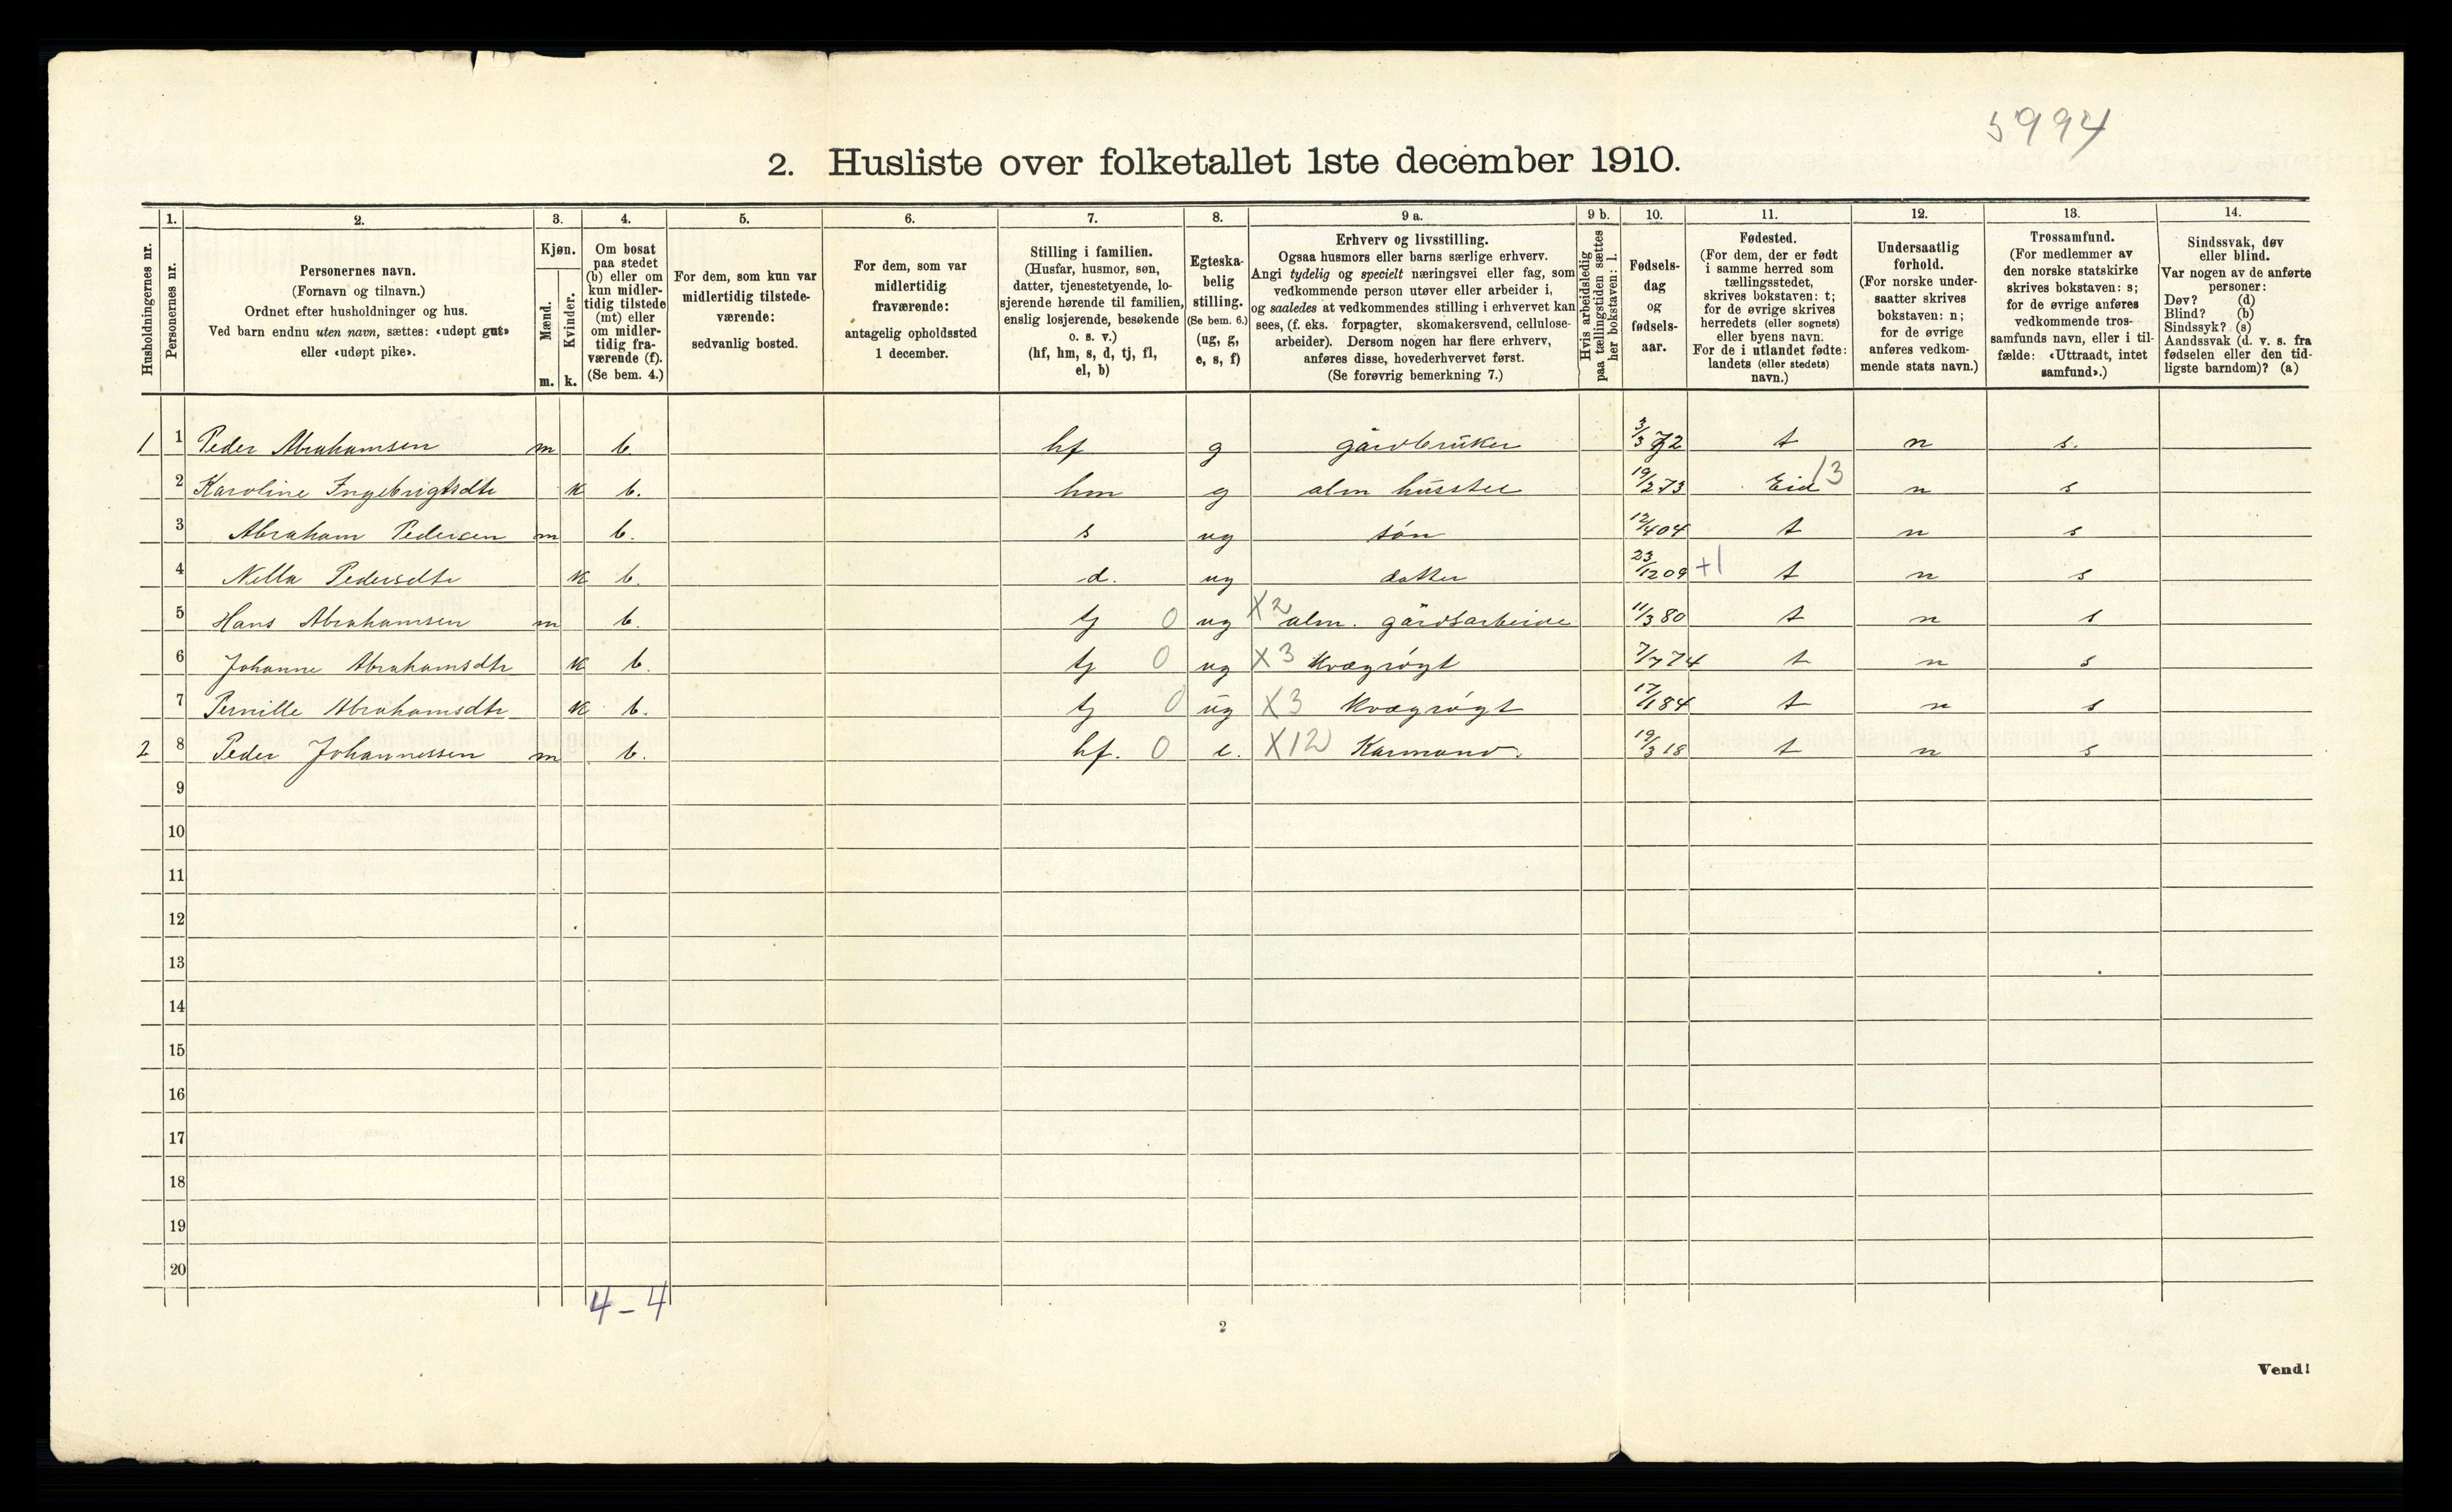 5994
2. Husliste over folketallet 1ste december 1910.
Husholdningernes nr.
1.
Personernes nr.
2.
Personernes navn.
(Fornavn og tilnavn.)
Ordnet efter husholdninger og hus.
Ved barn endnu uten navn, sættes: «udøpt gut»
eller «udøpt pike».
3.
Kjøn.
Mænd.
m.
Kvinder.
k.
4.
Om bosat
paa stedet
(b) eller om
kun midler-
tidig tilstede
(mt) eller
om midler-
tidig fra-
værende (f).
(Se bem. 4.)
5.
For dem, som kun var
midlertidig tilstede-
værende:
sedvanlig bosted.
6.
For dem, som var
midlertidig
fraværende:
antagelig opholdssted
1 december.
7.
Stilling i familien.
(Husfar, husmor, søn,
datter, tjenestetyende, lo-
sjerende hørende til familien,
enslig losjerende, besøkende
o. s. v.)
(hf, hm, s, d, tj, fl,
el, b)
8.
Egteska-
belig
stilling.
(Se bem. 6.)
(ug, g,
e, s, f)
9 a.
Erhverv og livsstilling.
Ogsaa husmors eller barns særlige erhverv.
Angi tydelig og specielt næringsvei eller fag, som
vedkommende person utøver eller arbeider i,
og saaledes at vedkommendes stilling i erhvervet kan
sees, (f. eks. forpagter, skomakersvend, cellulose-
arbeider). Dersom nogen har flere erhverv,
anføres disse, hovederhvervet først.
(Se forøvrig bemerkning 7.)
9 b.
Hvis arbeidsledig
paa tællingstiden sættes
her bokstaven: l.
10.
Fødsels-
dag
og
fødsels-
aar.
11.
Fødested.
(For dem, der er født
i samme herred som
tællingsstedet,
skrives bokstaven: t;
for de øvrige skrives
herredets (eller sognets)
eller byens navn.
For de i utlandet fødte:
landets (eller stedets)
navn.)
12.
Undersaatlig
forhold.
(For norske under-
saatter skrives
bokstaven: n;
for de øvrige
anføres vedkom-
mende stats navn.)
13.
Trossamfund.
(For medlemmer av
den norske statskirke
skrives bokstaven: s;
for de øvrige anføres
vedkommende tros-
samfunds navn, eller i til-
fælde: «Uttraadt, intet
samfund».)
14.
Sindssvak, døv
eller blind.
Var nogen av de anførte
personer:
Døv? (d)
Blind? (b)
Sindssyk? (s)
Aandssvak (d. v. s. fra
fødselen eller den tid-
ligste barndom)? (a)
1 1 Peder Abrahamsen m b. hf g gårdbruker 3/3 72 t n s.
2 Karoline Ingebrigtsdtr k b. hm g alm husstel 19/2 73 Eid 13 n s
3 Abraham Pedersen m b. s ug søn 12/4 04 t n s
4 Nella Pedersdtr k b. d. ug datter 23/12 09 +1 t n s
5 Hans Abrahamsen m b. tj 0 ug X2 alm. gårdsarbeide 11/3 80 t n s
6 Johanne Abrahamsdtr k b. tj 0 ug X3 Kvægrøgt 7/7 74 t n s
7 Pernille Abrahamsdtr k b. tj 0 ug X3 Kvægrøgt 17/1 84 t n s
2 8 Peder Johannessen m b. hf. 0 e. X12 Kaarmand. 19/3 18 t n s
9
10
11
12
13
14
15
16
17
18
19
20
4 - 4
2
Vend!